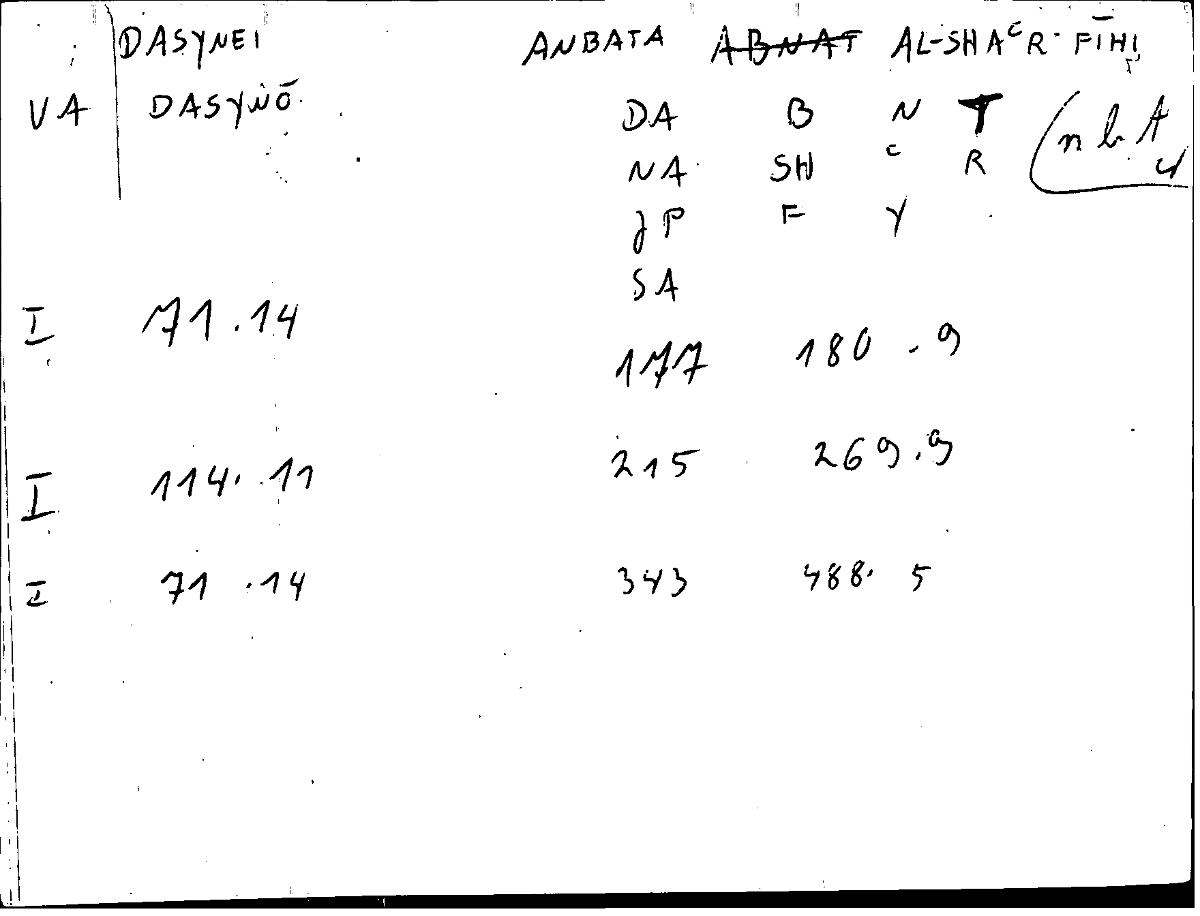 DASYNEI ANBATA ABNAT AL-SHAᶜR FĪHI
VA DASYNŌ DA B N T nbt
NA SH ᶜ R
JP F Y
SA
I 71.14 177 180.9
I 114.11 215 269.9
I 71.14 343 488.5